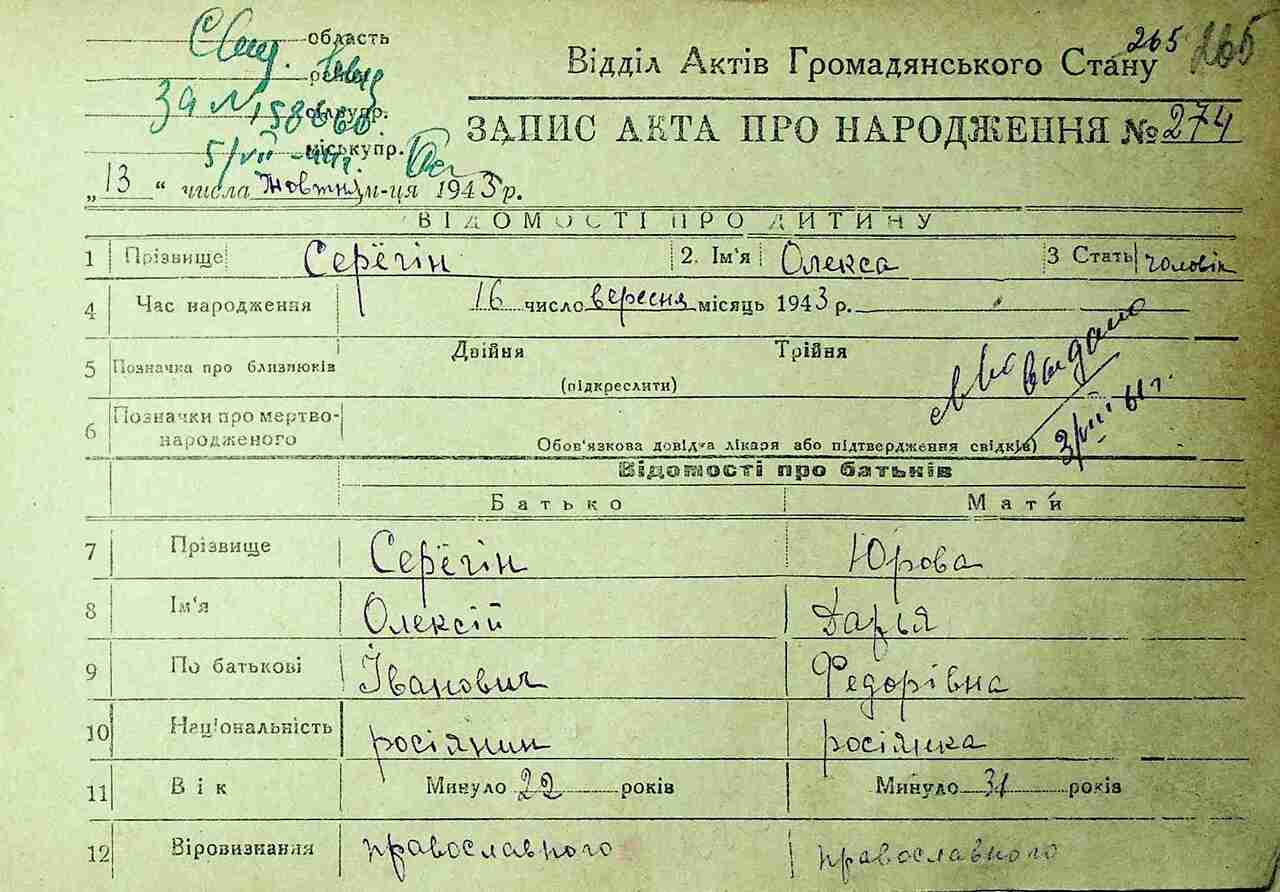 область
265 265
Відділ Актів Громадянського Стану
ЗАПИС АКТА ПРО НАРОДЖЕННЯ № 274
міськупр.
„ 13 “ числа Жовтня м-ця 1943 р.
ВІДОМОСТІ ПРО ДИТИНУ
1 Прізвище Серёгін 2. Ім'я Олекса 3 Стать чоловік
4 Час народження 16 число вересня місяць 1943 р.
5 Позначка про близнюків Двійня Трійня
(підкреслити)
6 Позначки про мертво-
народженого
Обов'язкова довідка лікаря або підтвердження свідків)
выдано
3/VIII 61 г.
Відомості про батьків
Батько Мати
7 Прізвище Серёгін Юрова
8 Ім'я Олексій Дарья
9 По батькові Іванович Федорівна
10 Національність росіянин росіянка
11 Вік Минуло 22 років Минуло 31 років
12 Віровизнання православного православного